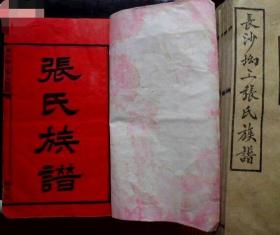 張氏族譜
長沙㘭上張氏族譜